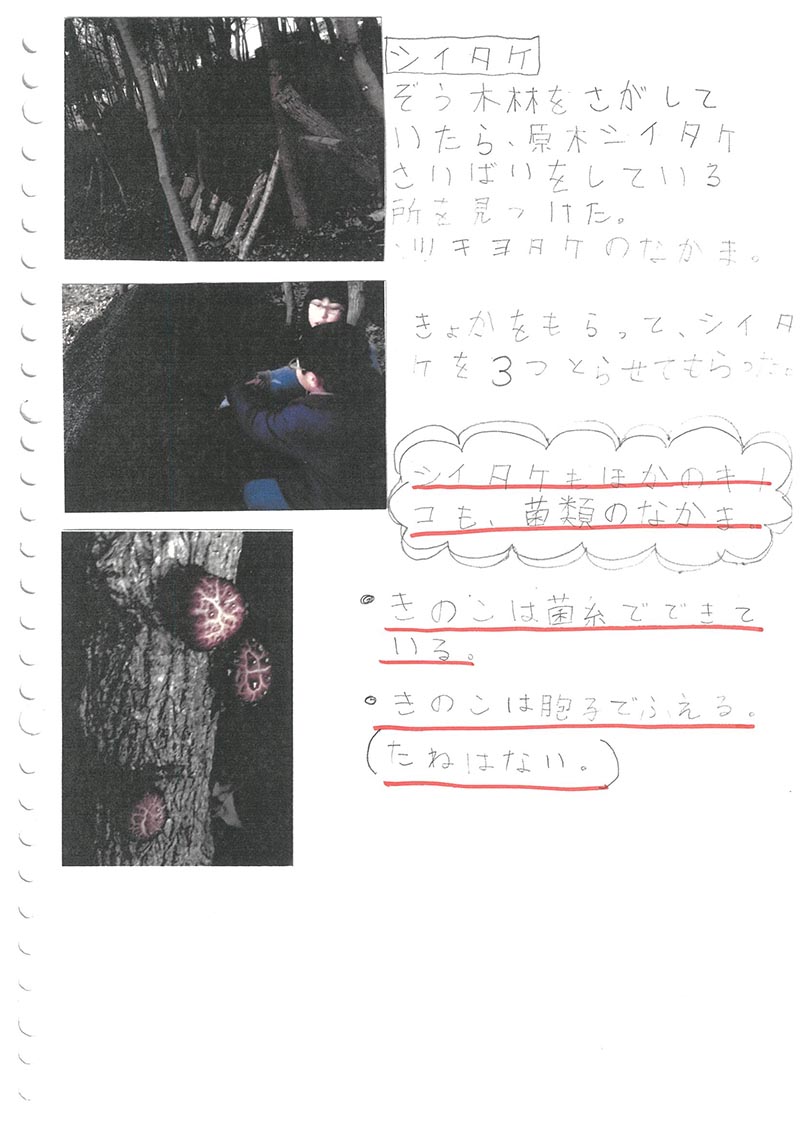 シイタケ
ぞう木林をさがして
いたら、原木シイタケ
さいばいをしている
所を見つけた。
ツキヨタケのなかま。
きょかをもらって、シイタ
ケを3つとらせてもらった。
シイタケもほかのキノ
コも、菌類のなかま。
きのこは菌糸でできて
いる。
きのこは胞子でふえる。
(たねはない。)